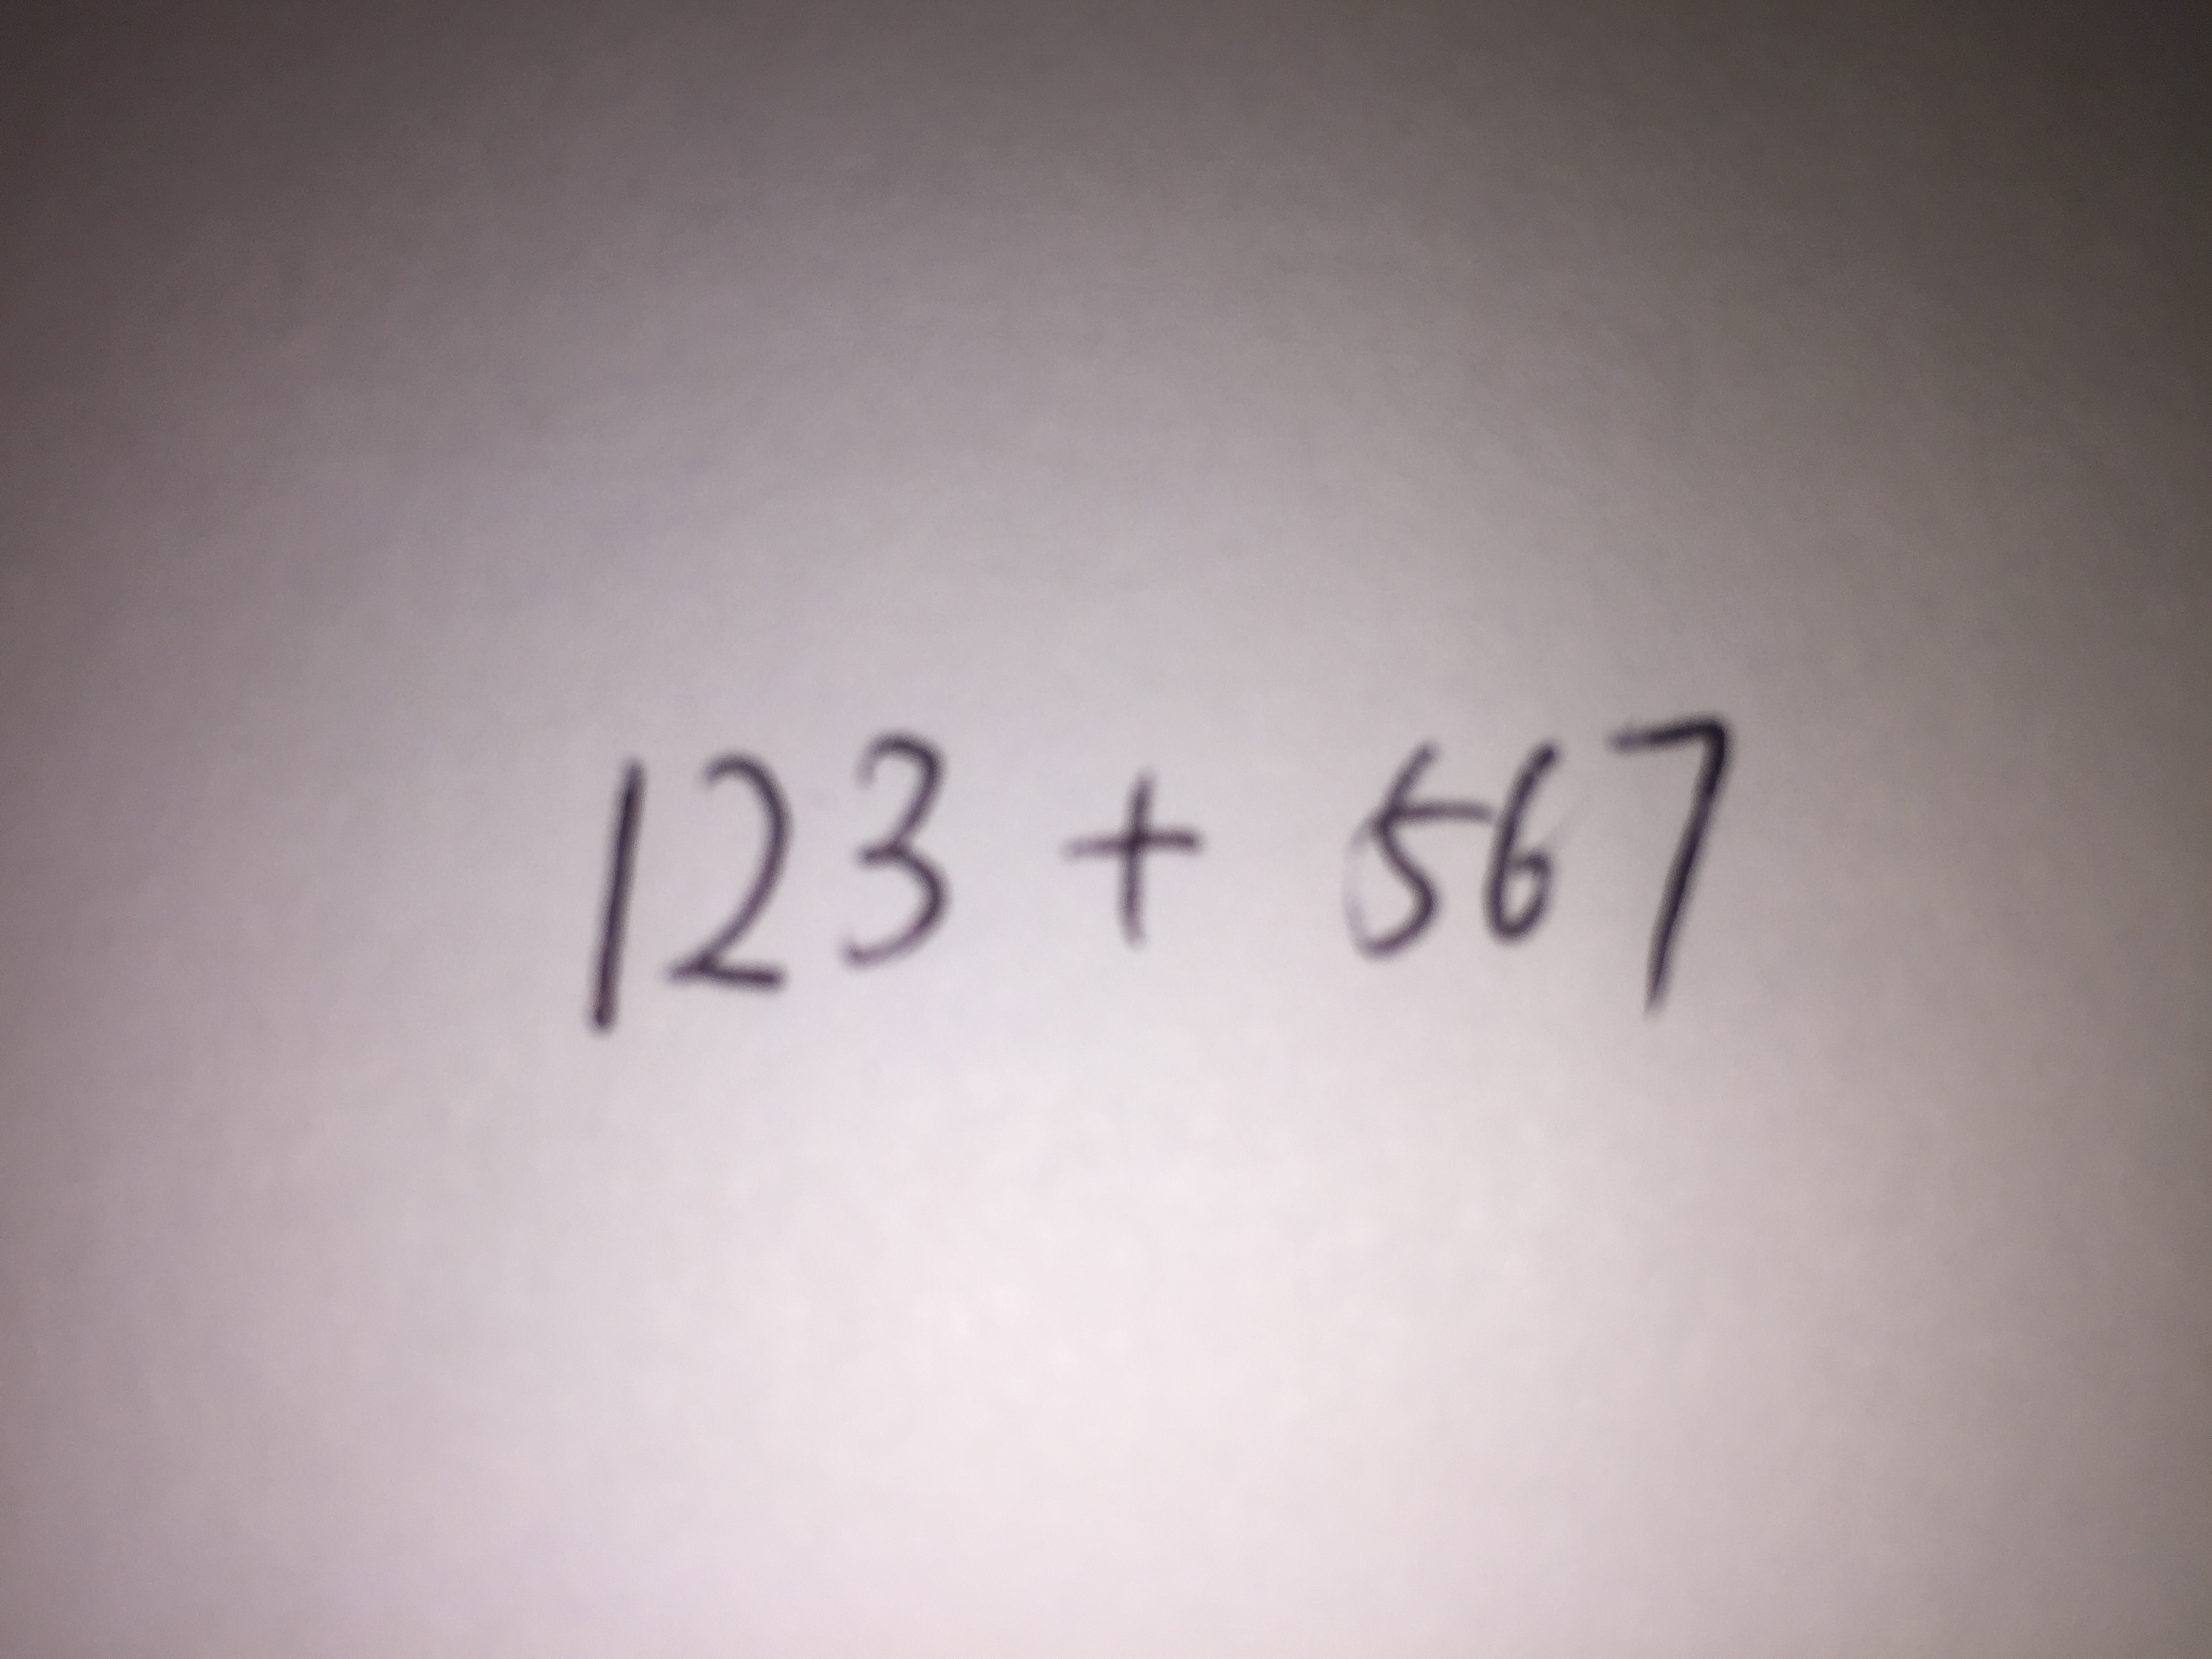 123 + 567